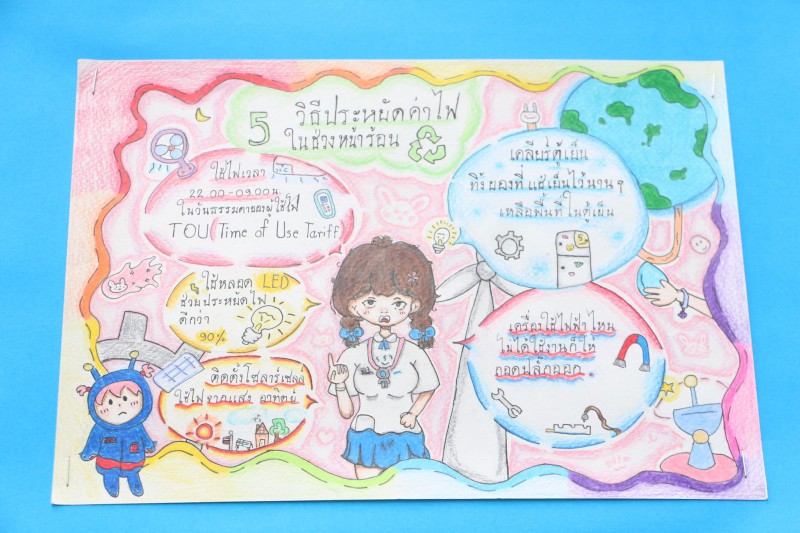 5 วิธีประหยัดค่าไฟ
ในช่วงหน้าร้อน
ใช้ไฟเวลา
22.00-09.00น.
ในวันธรรมดาของผู้ใช้ไฟ
TOU Time of Use Tariff
ใช้หลอด LED
ช่วยประหยัดไฟ
ดีกว่า
90%
ติดตั้งโซลาร์เซลล์
ใช้ไฟจากแสงอาทิตย์
เคลียร์ตู้เย็น
ทิ้งของที่แช่เย็นไว้นานๆ
เหลือพื้นที่ในตู้เย็น
เครื่องใช้ไฟฟ้าไหน
ไม่ได้ใช้งานก็ให้
ถอดปลั๊กออก